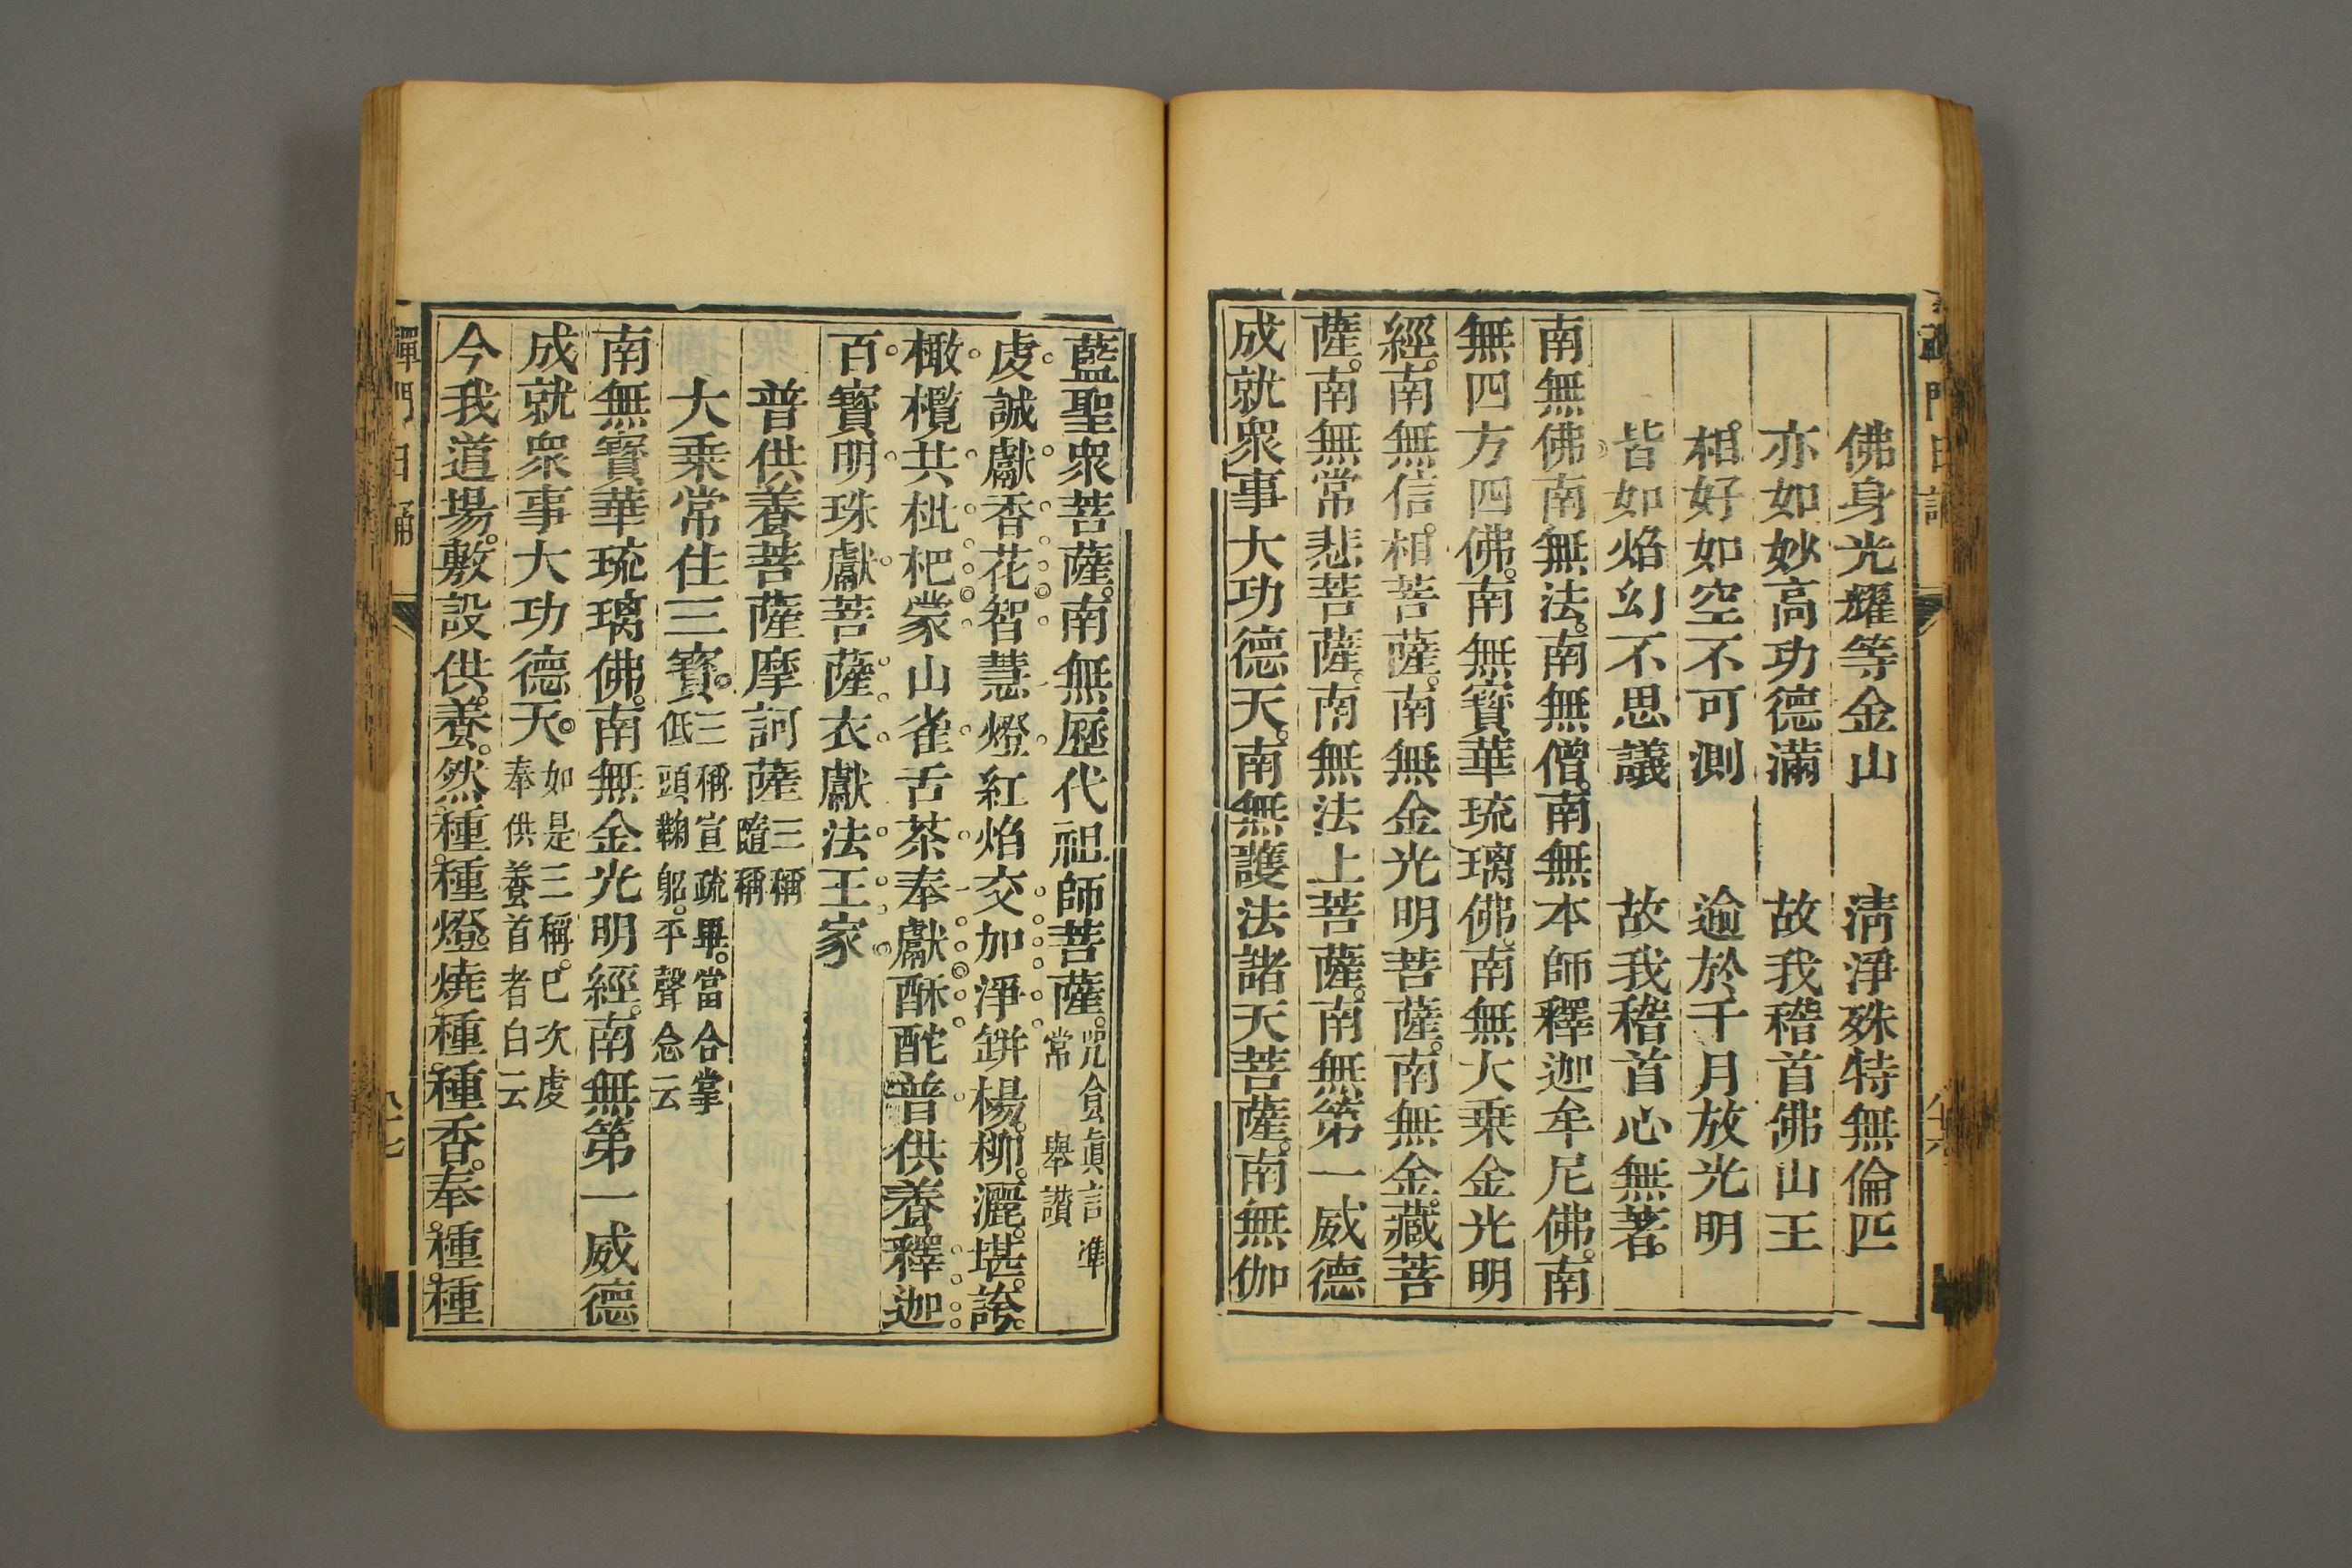 佛身光耀等金山　清淨殊特無倫匹
亦如妙高功德滿　故我稽首佛山王
相好如空不可測　逾於千月放光明
皆如焰幻不思議　故我稽首心無著。
南無佛南無法。南無僧。南無本師釋迦牟尼佛。南
無四方四佛。南無寶華琉璃佛。南無大乘金光明
經。南無信相菩薩。南無金光明菩薩。南無金藏菩
薩。南無常悲菩薩。南無法上菩薩。南無第一威德
成就衆事大功德天。南無護法諸天菩薩。南無伽
藍聖衆菩薩。南無歷代祖師菩薩。
咒食眞言準
常　舉讚
虔誠獻香花智慧燈紅焰交加淨缾楊柳。灑。堪。誇。
橄欖共枇杷蒙山雀舌茶奉獻酥酡普供養釋迦
百寶明珠獻菩薩衣獻法王家
普供養菩薩摩訶薩
三稱
隨稱
大乘常住三寶。
三稱宣疏畢。當合掌
低頭鞠躬。平聲念云
南無寶華琉璃佛。南無金光明經。南無第一威德
成就衆事大功德天。
如是三稱。已次虔
奉供養首者白云
今我道場。敷設供養。然種種燈。燒種種香。奉種種
禪門日誦